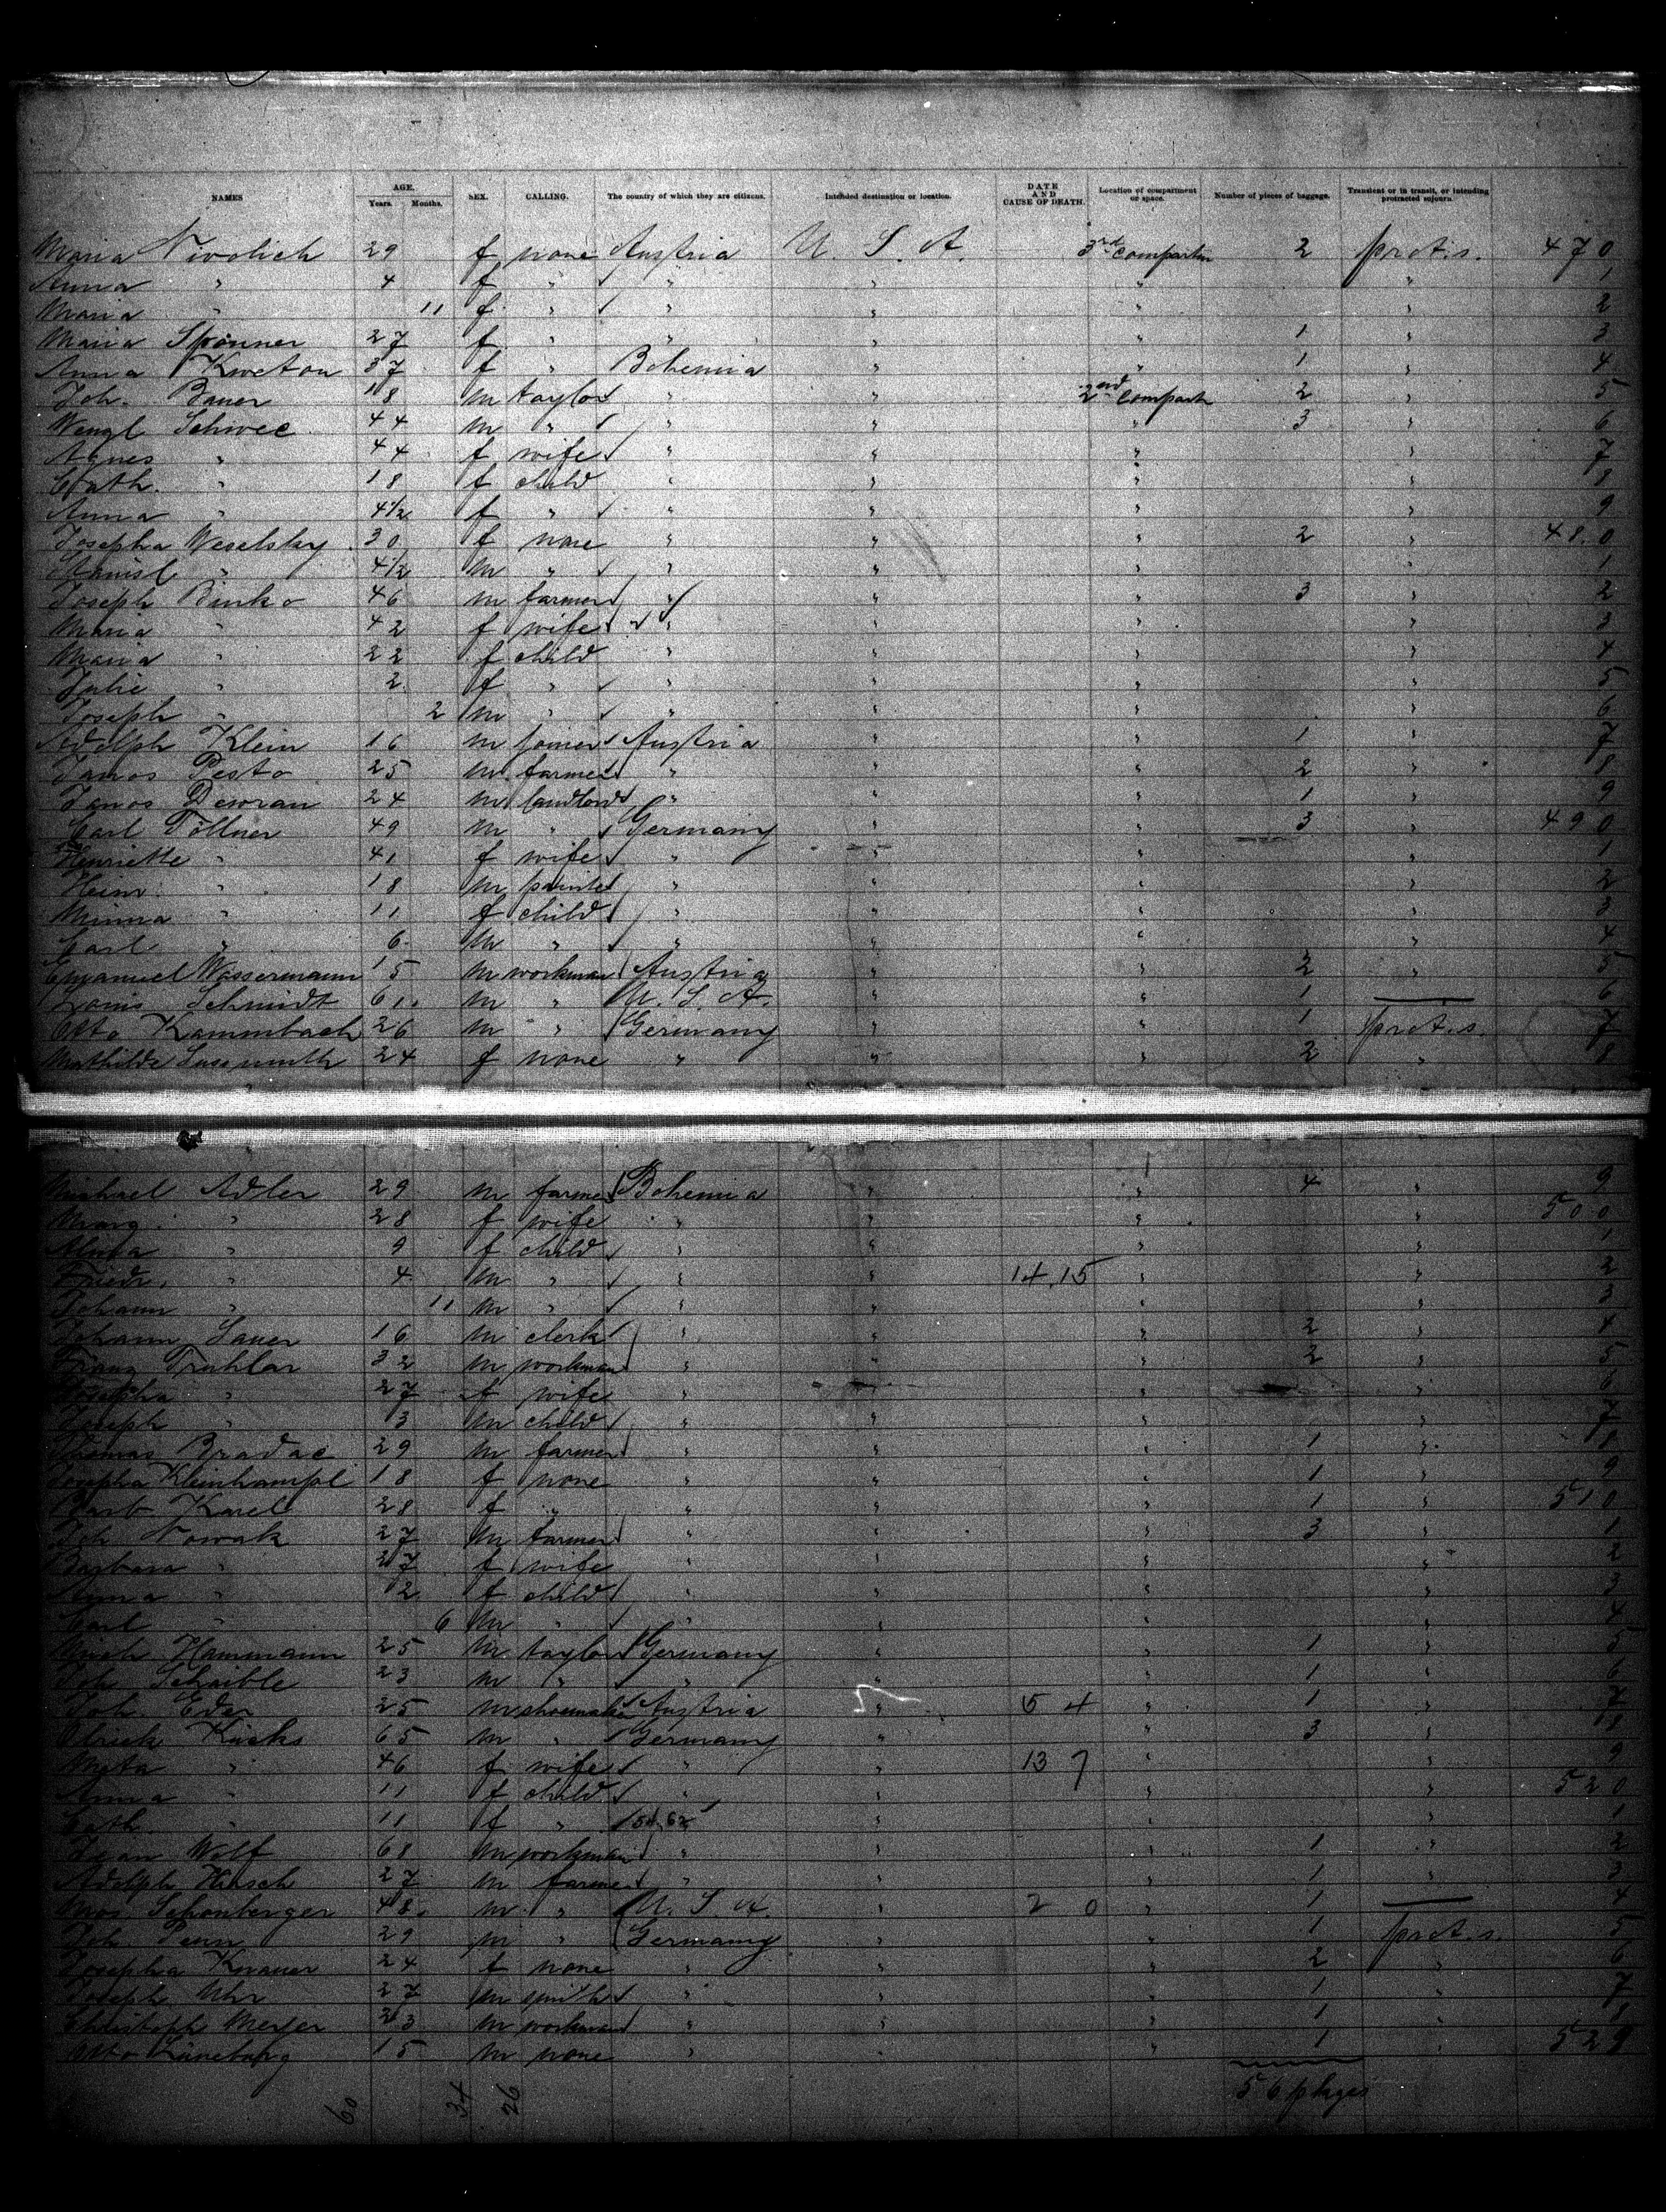 NAMES AGE. Years. Months. SEX. CALLING. The country of which they are citizens. Intended destination or location. DATE AND CAUSE OF DEATH. Location of compartment or space. Number of pieces of baggage. Transient or in transit, or intending protracted sojourn.
Maria 29 f none Austria U. S. A. 3rd compartm 2 prot. s. 470
Anna " 4 f " " " " " 1
Maria " 11 f " " " " " 2
Maria 27 f " " " " 1 " 3
Anna Kweton 37 f " Bohemia " " 1 " 4
Joh. Bauer 18 m taylor " " 2nd compartm 2 " 5
Wenzl Schwec 44 m " " " " 3 " 6
Agnes " 44 f wife " " " " 7
Cath. " 18 f child " " " " 8
Anna " 4 1/2 f " " " " " 9
Josepha Weselsky 30 f none " " " 2 " 480
Stanisl " 4 1/2 m " " " " " 1
Joseph Binko 46 m farmer " " " 3 " 2
Maria " 42 f wife " " " " 3
Maria " 22 f child " " " " 4
Julie " 2 f " " " " " 5
Joseph " 2 m " " " " " 6
Adolph Klein 16 m joiner Austria " " 1 " 7
Janos Pesto 25 m farmer " " " 2 " 8
Janos 24 m landlord " " " 1 " 9
Carl Töllner 49 m " Germany " " 3 " 490
Henriette " 41 f wife " " " " 1
Heinr. " 18 m painter " " " " 2
Minna " 11 f child " " " " 3
Carl " 6 m " " " " " 4
Emanuel Wassermann 15 m workman Austria " " 2 " 5
Louis Schmidt 61 m " U. S. A. " " 1 — 6
Otto Kammbach 26 m " Germany " " 1 prot. s. 7
Mathilde 24 f none " " " 2 " 8
Michael Adler 29 m farmer Bohemia " " 4 " 9
Marg. " 28 f wife " " " " 500
" 9 f child " " " " 1
Friedr. " 4 m " " " 14.15 " " 2
Johann " 11 m " " " " " 3
Johann Sauer 16 m clerk " " " 2 " 4
Franz Truhlar 32 m workman " " " 2 " 5
Josepha " 27 f wife " " " " 6
Joseph " 3 m child " " " " 7
Thomas Bradac 29 m farmer " " " 1 " 8
Josepha Kleinhampl 18 f none " " " 1 " 9
Barb. Karel 28 f " " " " 1 " 510
Joh Nowak 27 m farmer " " " 3 " 1
Barbara " 27 f wife " " " " 2
Anna " 2 f child " " " " 3
Carl " 6 m " " " " " 4
Mich. Hammann 25 m taylor Germany " " 1 " 5
Joh Schaible 23 m " " " " 1 " 6
Joh. Eder 25 m shoemaker Austria " 5 4 " 1 " 7
Ulrich 65 m " Germany " " 3 " 8
Meta " 46 f wife " " 13 7 " " 9
Anna " 11 f child " " " " 520
Cath. " 11 f " " " " 1
Jean Wolf 68 m workman " " " 1 " 2
Adolph Hirsch 27 m farmer " " " 1 " 3
Schonberger 48 m " U. S. A. " 2 0 " 1 — 4
Joh. 29 m " Germany " " 1 prot. s. 5
Josepha Knauer 24 f none " " " 2 " 6
Joseph Uhr 27 m smith " " " 1 " 7
Christoph 23 m workman " " " 1 " 8
Otto Lüneburg 15 m none " " " 1 " 529
60 34 26 56